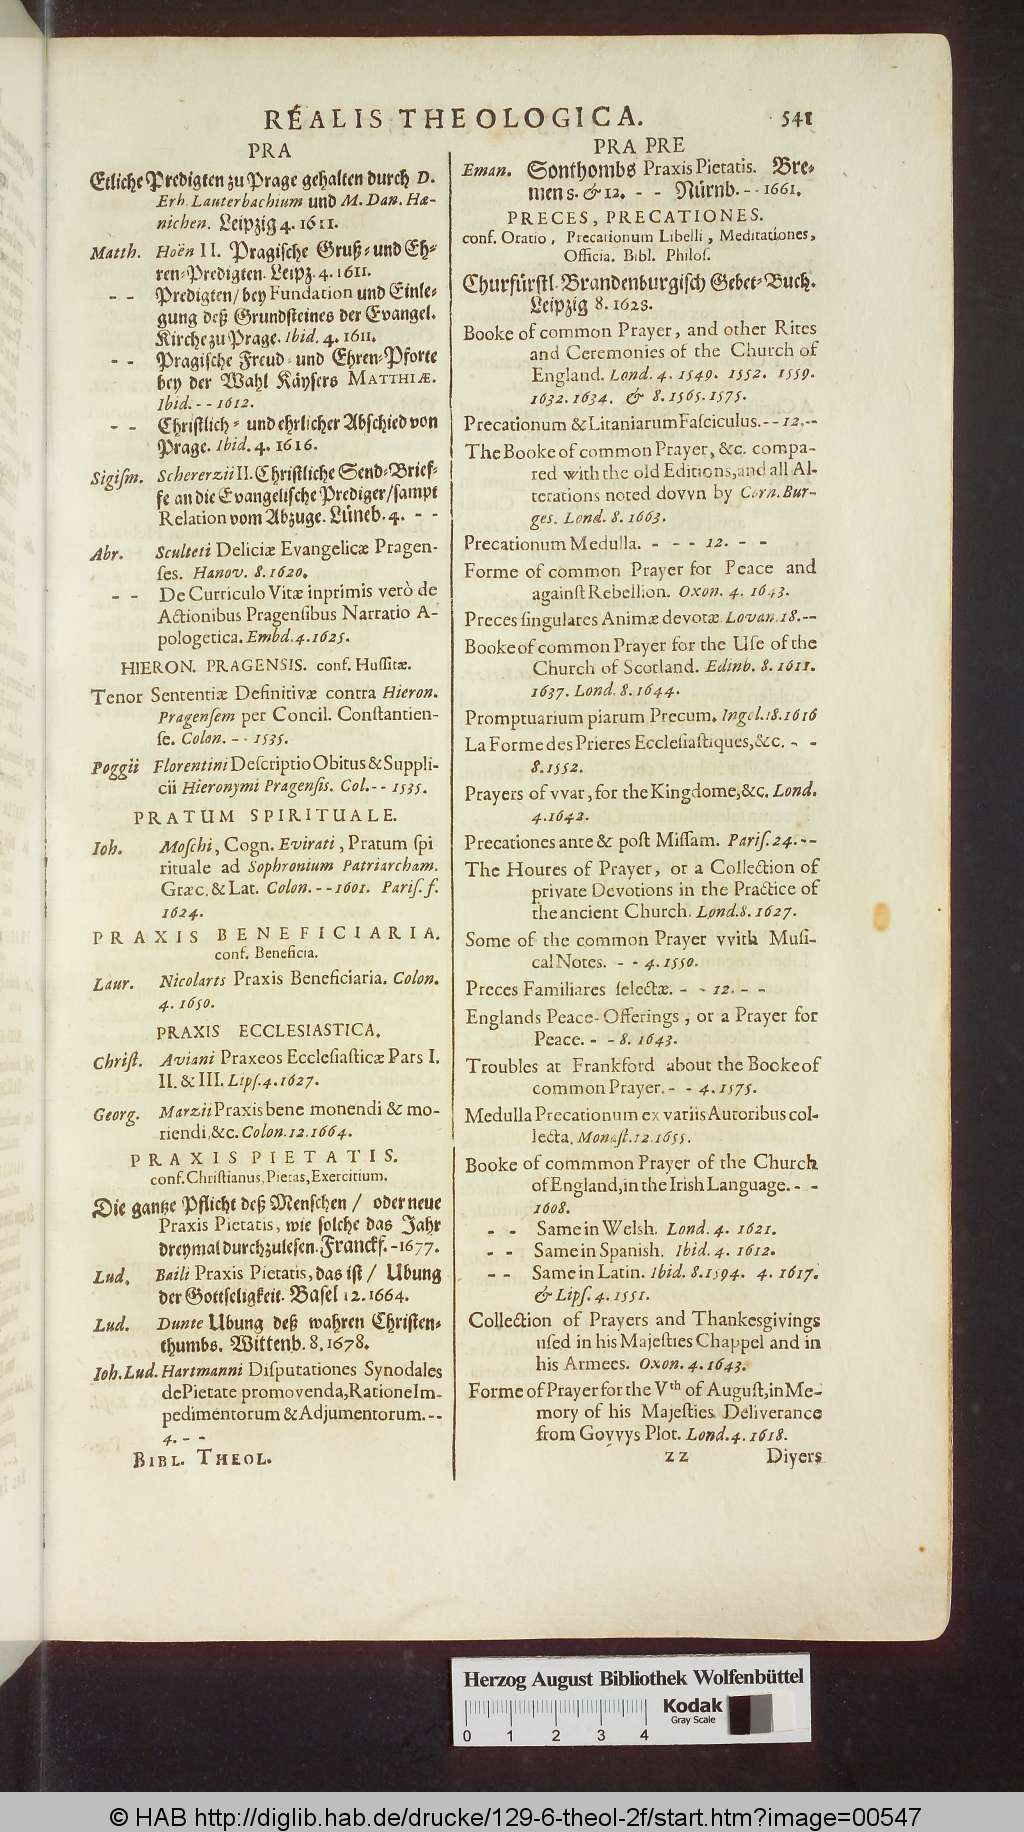 RÉALIS THEOLOGICA.
541
PRA
Etliche Predigten zu Prage gehalten durch D.
Erh. Lauterbachium und M. Dan. Hæ-
nichen. Leipzig 4. 1611.
Matth. Hoën II. Pragische Gruß- und Eh-
ren-Predigten. Leipz. 4. 1611.
- - Predigten/ bey Fundation und Einle-
gung deß Grundsteines der Evangel.
Kirche zu Prage. Ibid. 4. 1611.
- - Pragische Freud- und Ehren-Pforte
bey der Wahl Käysers MATTHIÆ.
Ibid. - - 1612.
- - Christlich- und ehrlicher Abschied von
Prage. Ibid. 4. 1616.
Sigiſm. Schererzii II. Christliche Send-Brief-
fe an die Evangelische Prediger/ sampt
Relation vom Abzuge. Lüneb. 4. - -
Abr. Sculteti Deliciæ Evangelicæ Pragen-
ſes. Hanov. 8. 1620.
- - De Curriculo Vitæ inprimis verò de
Actionibus Pragenſibus Narratio A-
pologetica. Embd. 4. 1625.
HIERON. PRAGENSIS. conf. Huſſitæ.
Tenor Sententiæ Definitivæ contra Hieron.
Pragenſem per Concil. Conſtantien-
ſe. Colon. - - 1535.
Poggii Florentini Deſcriptio Obitus & Suppli-
cii Hieronymi Pragenſis. Col. - - 1535.
PRATUM SPIRITUALE.
Ioh. Moſchi, Cogn. Evirati, Pratum ſpi
rituale ad Sophronium Patriarcham.
Græc. & Lat. Colon. - - 1601. Pariſ. f.
1624.
PRAXIS BENEFICIARIA.
conf. Beneficia.
Laur. Nicolarts Praxis Beneficiaria. Colon.
4. 1650.
PRAXIS ECCLESIASTICA.
Chriſt. Aviani Praxeos Eccleſiaſticæ Pars I.
II. & III. Lipſ. 4. 1627.
Georg. Marzii Praxis bene monendi & mo-
riendi, &c. Colon. 12. 1664.
PRAXIS PIETATIS.
conf. Chriſtianus, Pietas, Exercitium.
Die gantze Pflicht deß Menschen/ oder neue
Praxis Pietatis, wie solche das Jahr
dreymal durchzulesen. Franckf. - 1677.
Lud. Baili Praxis Pietatis, das ist/ Ubung
der Gottseligkeit. Basel 12. 1664.
Lud. Dunte Ubung deß wahren Christen-
thumbs. Wittenb. 8. 1678.
Ioh. Lud. Hartmanni Diſputationes Synodales
de Pietate promovenda, Ratione Im-
pedimentorum & Adjumentorum. - -
4. - -
BIBL. THEOL.
PRA PRE
Eman. Sonthombs Praxis Pietatis. Bre-
men 8. & 12. - - Nürnb. - - 1661.
PRECES, PRECATIONES.
conf. Oratio, Precationum Libelli, Meditationes,
Officia. Bibl. Philoſ.
Churfürstl. Brandenburgisch Gebet-Buch.
Leipzig 8. 1628.
Booke of common Prayer, and other Rites
and Ceremonies of the Church of
England. Lond. 4. 1549. 1552. 1559.
1632. 1634. & 8. 1565. 1575.
Precationum & Litaniarum Faſciculus. - - 12. - -
The Booke of common Prayer, &c. compa-
red with the old Editions, and all Al-
terations noted dovvn by Corn. Bur-
ges. Lond. 8. 1663.
Precationum Medulla. - - - 12. - -
Forme of common Prayer for Peace and
againſt Rebellion. Oxon. 4. 1643.
Preces ſingulares Animæ devotæ Lovan. 18. - -
Booke of common Prayer for the Uſe of the
Church of Scotland. Edinb. 8. 1611.
1637. Lond. 8. 1644.
Promptuarium piarum Precum. Ingol. 18. 1616
La Forme des Prieres Eccleſiaſtiques, &c. - -
8. 1552.
Prayers of vvar, for the Kingdome, &c. Lond.
4. 1642.
Precationes ante & poſt Miſſam. Pariſ. 24. - -
The Houres of Prayer, or a Collection of
private Devotions in the Practice of
the ancient Church. Lond. 8. 1627.
Some of the common Prayer vvith Muſi-
cal Notes. - - 4. 1550.
Preces Familiares ſelectæ. - - 12. - -
Englands Peace-Offerings, or a Prayer for
Peace. - - 8. 1643.
Troubles at Frankford about the Booke of
common Prayer. - - 4. 1575.
Medulla Precationum ex variis Autoribus col-
lecta. Monaſt. 12. 1655.
Booke of commmon Prayer of the Church
of England, in the Irish Language. - -
1608.
- - Same in Welsh. Lond. 4. 1621.
- - Same in Spanish. Ibid. 4. 1612.
- - Same in Latin. Ibid. 8. 1594. 4. 1617.
& Lipſ. 4. 1551.
Collection of Prayers and Thankesgivings
uſed in his Majeſties Chappel and in
his Armees. Oxon. 4. 1643.
Forme of Prayer for the Vth of Auguſt, in Me-
mory of his Majeſties Deliverance
from Govvys Plot. Lond. 4. 1618.
ZZ
Divers
Herzog August Bibliothek Wolfenbüttel
0 1 2 3 4
Kodak
Gray Scale
© HAB http://diglib.hab.de/drucke/129-6-theol-2f/start.htm?image=00547